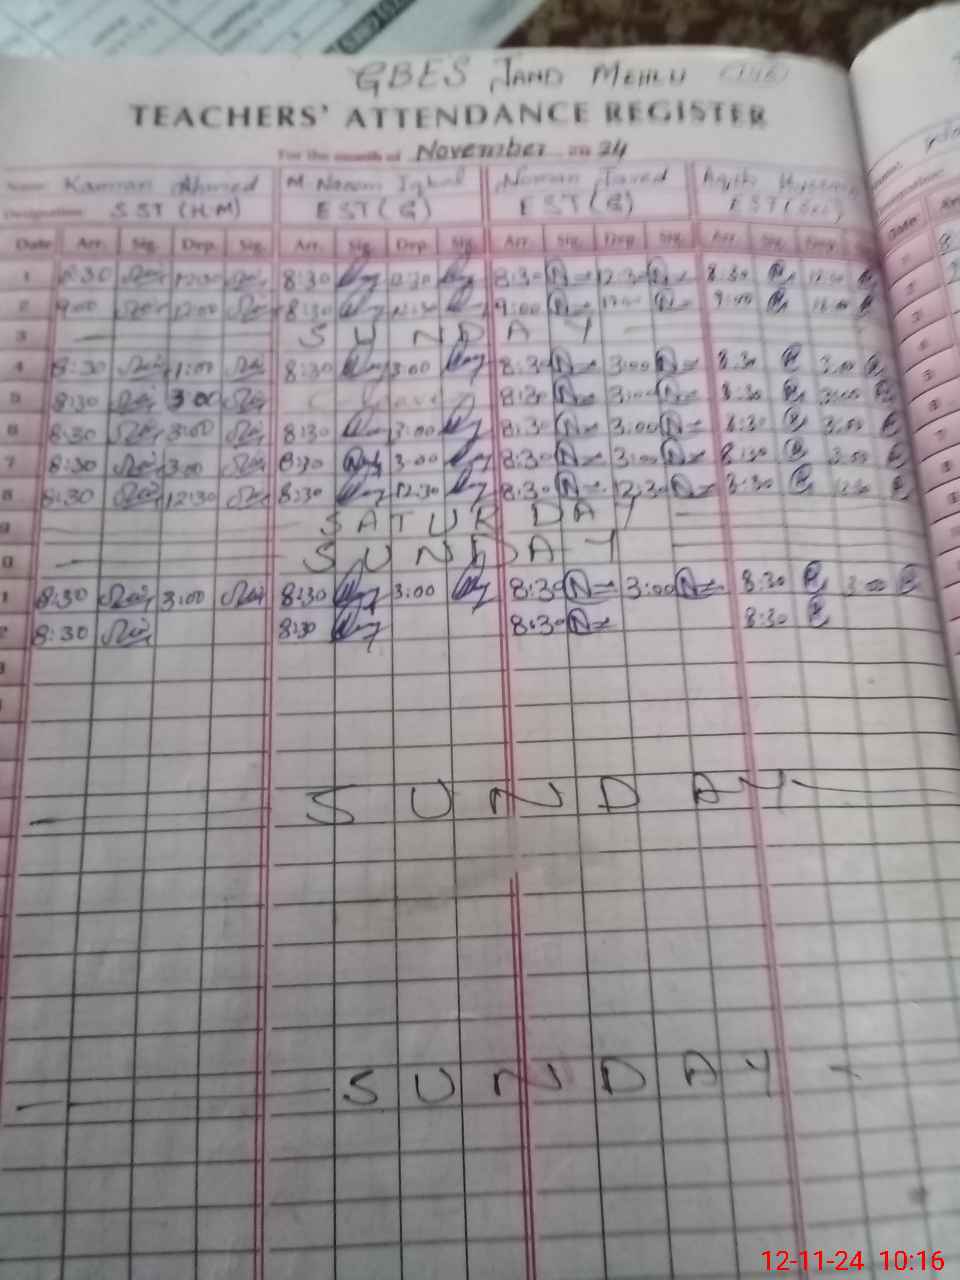 GBES JAND MEHLU
TEACHERS' ATTENDANCE REGISTER
For the month of November 24
Name Kamran Ahmed M. Naeem Iqbal Noman Javed
Designation SST (H.M) EST (G) EST (G) EST
Date Arr. Sig. Dep. Sig. Arr. Sig. Dep. Sig. Arr. Sig. Dep. Sig. Arr. Sig. Dep.
1 8:30 12:30 8:30 12:30 8:30 12:30 8:30
2 9:00 12:00 8:30 12:30 9:00 9:00
3 SUNDAY
4 8:30 1:00 8:30 3:00 8:30 3:00 8:30 3:00
5 8:30 3:00 Leave 8:30 3:00 8:30 3:00
6 8:30 3:00 8:30 3:00 8:30 3:00 8:30 3:00
7 8:30 3:00 8:30 3:00 8:30 3:00 8:30 3:00
8 8:30 12:30 8:30 12:30 8:30 12:30 8:30 12:30
SATURDAY
SUNDAY
8:30 3:00 8:30 3:00 8:30 3:00 8:30 3:00
8:30 8:30 8:30 8:30
SUNDAY
SUNDAY
12-11-24 10:16